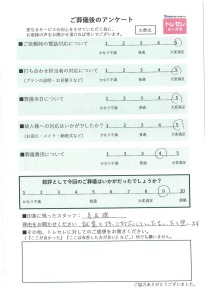 ご葬儀後のアンケート
更なるサービスの向上をさせていただく為に、
お客様の声をお聞かせ頂ければ幸いでございます。
トレセレ
ご依頼時の電話対応について
1 2 3 4 5
かなり不満 普通 大変満足
■打ち合わせ担当者の対応について
(プランの説明・お見積りなど)
1 2 3 4 5
かなり不満 普通 大変満足
■葬儀当日について
1 2 3 4 5
かなり不満 普通 大変満足
■故人様への対応はいかがでしたか?
(お迎え・メイク・納棺式など)
1 2 3 4 5
かなり不満 普通 大変満足
■葬儀費用について
1 2 3 4 5
かなり不満 普通 大変満足
総評として今回のご葬儀はいかがだったでしょうか?
1 2 3 4 5 6 7 8 9 10
かなり不満 普通 大変満足
■印象に残ったスタッフ:
理由をお聞かせください
■その他、トレセレに対してのご感想をお書きください。
(「ここが良かった」「ここは改善した方が良い」など。)何でも構いません。
ご協力ありがとうございました。